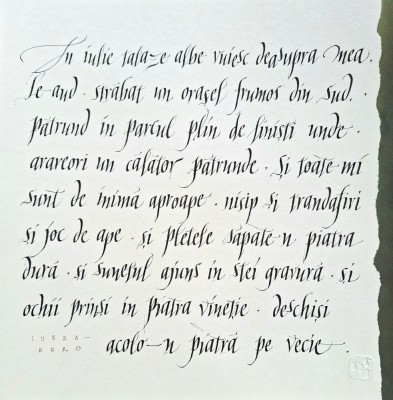 În iulie talaze albe vuiesc deasupra mea.
Le aud. străbat un orașel frumos din sud.
pătrund în parcul plin de liniști unde.
arareori un călător pătrunde. Și toate-mi
sunt de inimă aproape. nisip și trandafiri
și joc de ape. și pletele săpate-n piatra
dură. și sunetul ajuns in stei gravură. și
ochii prinși in piatra vineție. deschiși
acolo-n piatră pe vecie.